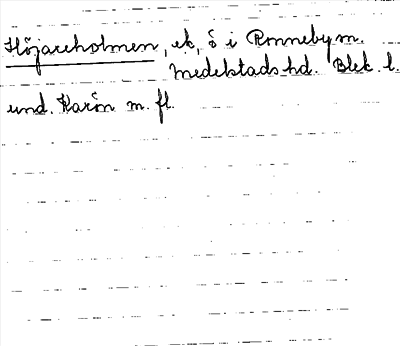 Höjareholmen, ek, ö i Ronneby m.
Medelstads hd. Blek. l.
und. Karön m. fl.